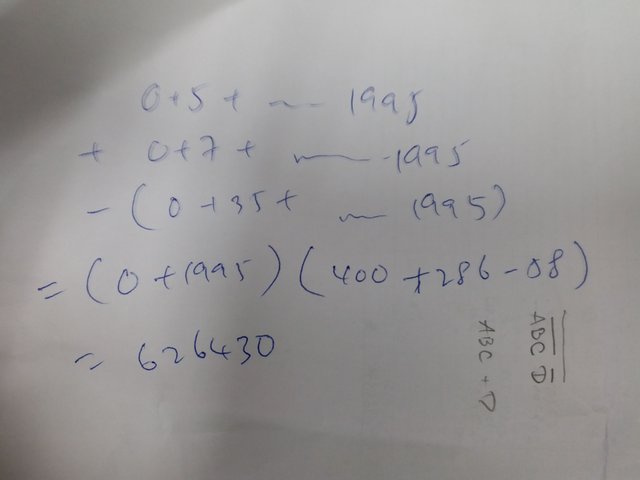 0+5+ ~ 1995
+ 0+7+ ~ 1995
-(0+35+ ~ 1995)
=(0+1995)(400+286-58)
= 626430
ABC D
ABC + D